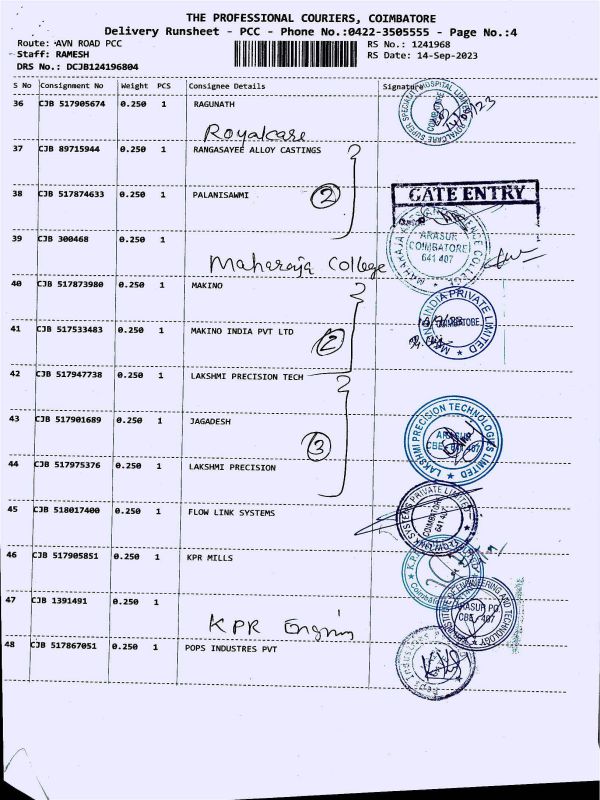 THE PROFESSIONAL COURIERS, COIMBATORE
Delivery Runsheet - PCC - Phone No.:0422-3505555 - Page No.:4
Route: AVN ROAD PCC RS No.: 1241968
Staff: RAMESH RS Date: 14-Sep-2023
DRS No.: DCJB124196804
S No Consignment No Weight PCS Consignee Details Signature
36 CJB 517905674 0.250 1 RAGUNATH
Royalcare
37 CJB 89715944 0.250 1 RANGASAYEE ALLOY CASTINGS
38 CJB 517874633 0.250 1 PALANISAWMI
2
GATE ENTRY
39 CJB 300468 0.250 1
ARASUR
COIMBATORE
641 407
Maharaja College
40 CJB 517873980 0.250 1 MAKINO
41 CJB 517533483 0.250 1 MAKINO INDIA PVT LTD
2
COIMBATORE
42 CJB 517947738 0.250 1 LAKSHMI PRECISION TECH
43 CJB 517901689 0.250 1 JAGADESH
LAKSHMI PRECISION TECHNOLOGIES LIMITED
ARASUR
CBE - 641 407
3
44 CJB 517975376 0.250 1 LAKSHMI PRECISION
45 CJB 518017400 0.250 1 FLOW LINK SYSTEMS
COIMBATORE
641 407
46 CJB 517905851 0.250 1 KPR MILLS
47 CJB 1391491 0.250 1
ARASUR PO.
KPR
48 CJB 517867051 0.250 1 POPS INDUSTRES PVT